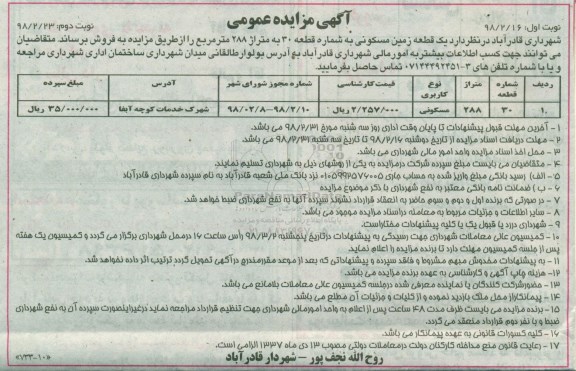 آگهی مزایده عمومی
نوبت اول: ۹۸/۲/۱۶
نوبت دوم: ۹۸/۲/۲۳
شهرداری قادرآباد در نظر دارد یک قطعه زمین مسکونی به شماره قطعه ۳۰ به متراژ ۲۸۸ متر مربع را از طریق مزایده به فروش برساند. متقاضیان
می توانند جهت کسب اطلاعات بیشتر به امور مالی شهرداری قادرآباد به آدرس بولوار طالقانی میدان شهرداری ساختمان اداری شهرداری مراجعه
و یا با شماره تلفن های ۳-۰۷۱۴۴۴۹۲۳۵۱ تماس حاصل بفرمایید.
ردیف | شماره قطعه | متراژ | نوع کاربری | قیمت کارشناسی | شماره مجوز شورای شهر | آدرس | مبلغ سپرده
۱ | ۳۰ | ۲۸۸ | مسکونی | ۲/۲۵۷/۰۰۰ ریال | ۹۸/۰۲/۸-۹۸/۲/۱۰ | شهرک خدمات کوچه آبفا | ۳۵/۰۰۰/۰۰۰ ریال
۱ - آخرین مهلت قبول پیشنهادات تا پایان وقت اداری روز سه شنبه مورخ ۹۸/۲/۳۱ می باشد.
۲ - مهلت دریافت اسناد مزایده از تاریخ دوشنبه ۹۸/۲/۱۶ تا تاریخ سه شنبه ۹۸/۲/۳۱ می باشد.
۳ - محل اخذ اسناد مزایده واحد امور مالی شهرداری می باشد.
۴ - متقاضیان می بایست مبلغ سپرده شرکت در مزایده به یکی از روشهای ذیل به شهرداری تسلیم نمایند.
۵ - الف) رسید بانکی مبلغ واریز شده به حساب جاری ۰۱۰۵۹۹۵۷۶۰۰۵ نزد بانک ملی شعبه قادرآباد به نام سپرده شهرداری قادرآباد
۶ - ب) ضمانت نامه بانکی معتبر به نفع شهرداری با ذکر موضوع مزایده
۷ - در صورتی که برنده اول و دوم و سوم حاضر به انعقاد قرارداد نشوند سپرده آنها به نفع شهرداری ضبط خواهد شد.
۸ - سایر اطلاعات و جزئیات مربوط به معامله در اسناد مزایده موجود می باشد.
۹ - شهرداری در رد یا قبول یک یا کلیه پیشنهادات مختار است.
۱۰ - کمیسیون عالی معاملات شهرداری جهت رسیدگی به پیشنهادات در تاریخ پنجشنبه ۹۸/۳/۲ رأس ساعت ۱۶ در محل شهرداری برگزار می گردد و کمیسیون یک هفته
پس از جلسه کمیسیون مهلت دارد تا برنده مزایده را اعلام نماید.
۱۱ - به پیشنهادات مخدوش مبهم مشروط و فاقد سپرده و پیشنهاداتی که بعد از موعد مقرر مندرج در آگهی تحویل گردد ترتیب اثر داده نخواهد شد.
۱۲ - هزینه چاپ آگهی و کارشناسی به عهده برنده مزایده می باشد.
۱۳ - حضور شرکت کنندگان یا نماینده معرفی شده در جلسه کمیسیون عالی معاملات بلامانع می باشد.
۱۴ - پیمانکار از محل ملک بازدید نموده و از کلیات و جزئیات آن مطلع می باشد.
۱۵ - برنده مزایده می بایست ظرف مدت ۴۸ ساعت پس از اعلام به واحد امور مالی شهرداری جهت تنظیم قرارداد مراجعه نماید در غیر اینصورت سپرده آن به نفع شهرداری
ضبط و با نفر دوم قرارداد منعقد می گردد.
۱۶ - کلیه کسورات قانونی به عهده پیمانکار می باشد.
۱۷ - رعایت قانون منع مداخله کارکنان دولت در معاملات دولتی مصوب ۱۳ دی ماه ۱۳۳۷ الزامی است.
روح الله نجف پور – شهردار قادرآباد
«۷۳۳-۱۰»